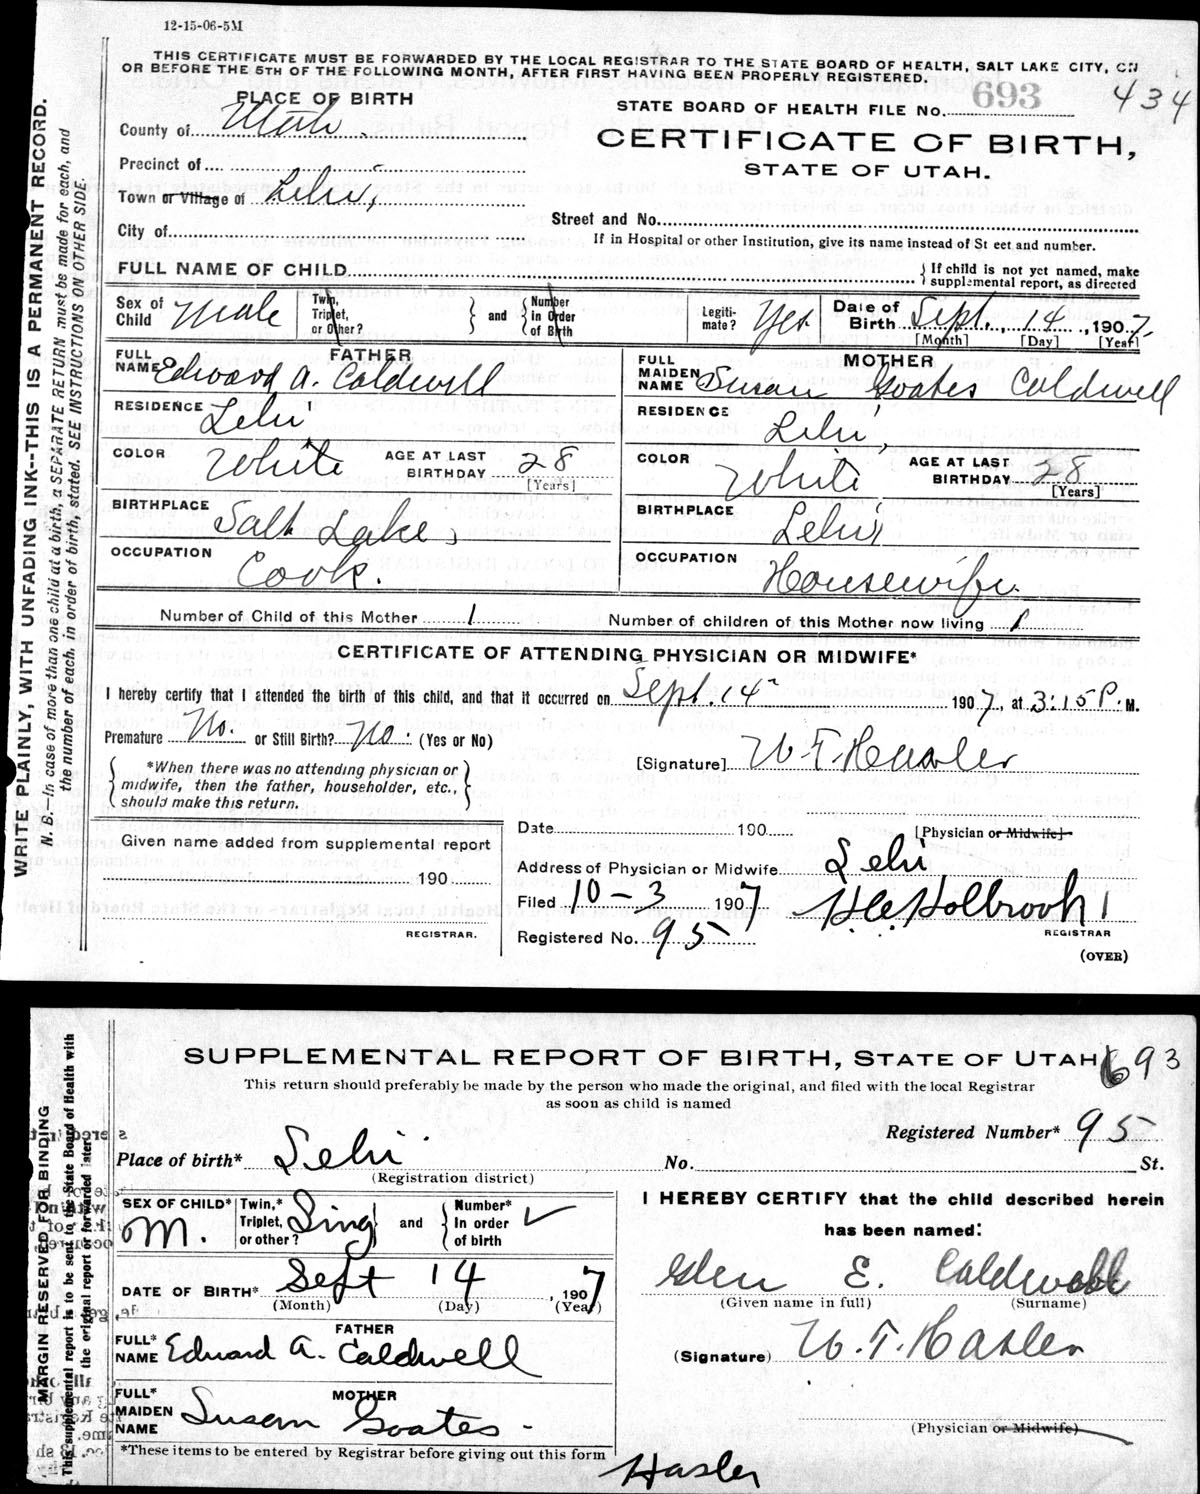 12-15-06-5M
THIS CERTIFICATE MUST BE FORWARDED BY THE LOCAL REGISTRAR TO THE STATE BOARD OF HEALTH, SALT LAKE CITY, ON
OR BEFORE THE 5TH OF THE FOLLOWING MONTH, AFTER FIRST HAVING BEEN PROPERLY REGISTERED.
WRITE PLAINLY, WITH UNFADING INK--THIS IS A PERMANENT RECORD.
N. B.—In case of more than one child at a birth, a SEPARATE RETURN must be made for each, and
the number of each, in order of birth, stated. SEE INSTRUCTIONS ON OTHER SIDE.
PLACE OF BIRTH
STATE BOARD OF HEALTH FILE No. 693 434
County of Utah.
CERTIFICATE OF BIRTH,
STATE OF UTAH.
Precinct of
Town or Village of Lehi,
Street and No.
City of
If in Hospital or other Institution, give its name instead of St eet and number.
FULL NAME OF CHILD
{ If child is not yet named, make
supplemental report, as directed
Sex of Child Male
Twin, Triplet, or Other?
} and {
Number in Order of Birth
Legiti-mate? Yes
Date of Birth Sept., 14, 1907.
[Month] [Day] [Year]
FATHER
FULL NAME Edward A. Caldwell
MOTHER
FULL MAIDEN NAME Susan Goates Caldwell
RESIDENCE Lehi
RESIDENCE Lehi,
COLOR White AGE AT LAST BIRTHDAY 28 [Years]
COLOR White AGE AT LAST BIRTHDAY 28 [Years]
BIRTHPLACE Salt Lake,
BIRTHPLACE Lehi,
OCCUPATION Cook.
OCCUPATION Housewife.
Number of Child of this Mother 1
Number of children of this Mother now living 1
CERTIFICATE OF ATTENDING PHYSICIAN OR MIDWIFE*
I hereby certify that I attended the birth of this child, and that it occurred on Sept. 14 1907, at 3:15 P. M.
Premature No. or Still Birth? No. (Yes or No)
[Signature] W. T. Hasler
{ *When there was no attending physician or
midwife, then the father, householder, etc.,
should make this return. }
Date 190
[Physician or Midwife]
Given name added from supplemental report
190
REGISTRAR.
Address of Physician or Midwife Lehi
Filed 10-3 1907 H.C. Holbrook
REGISTRAR
Registered No. 95
(OVER)
SUPPLEMENTAL REPORT OF BIRTH, STATE OF UTAH 693
This return should preferably be made by the person who made the original, and filed with the local Registrar
as soon as child is named
MARGIN RESERVED FOR BINDING
This supplemental report is to be sent to the State Board of Health with
the original report or forwarded later.
Registered Number* 95
Place of birth* Lehi No. St.
(Registration district)
SEX OF CHILD* M.
Twin,* Triplet, or other? Sing } and {
Number* In order of birth ✓
I HEREBY CERTIFY that the child described herein
has been named:
DATE OF BIRTH* Sept 14, 1907
(Month) (Day) (Year)
Glen E. Caldwell
(Given name in full) (Surname)
FATHER
FULL* NAME Edward A. Caldwell
(Signature) W. T. Hasler
MOTHER
FULL* MAIDEN NAME Susan Goates
(Physician or Midwife)
*These items to be entered by Registrar before giving out this form
Hasler